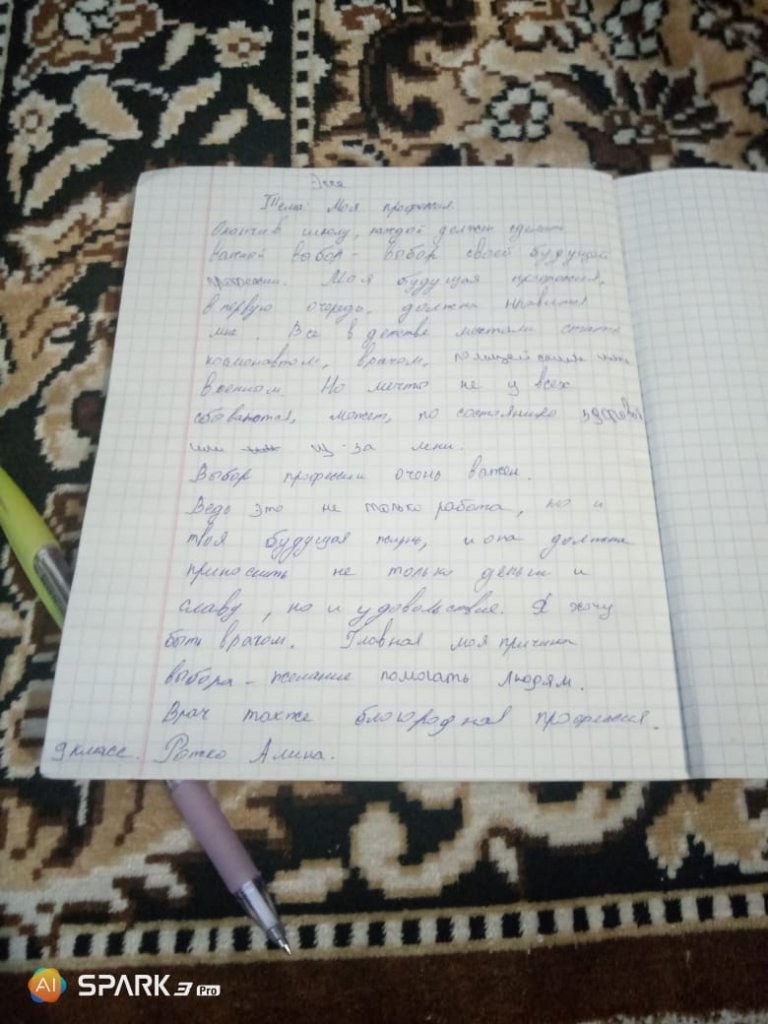 Эссе
Тема: Моя профессия.
Окончив школу, каждый должен сделать
важный выбор - выбор своей будущей
профессии. Моя будущая профессия,
в первую очередь, должна нравиться
мне. Все в детстве мечтали стать
космонавтом, врачом, полицейским или
военным. Но мечты не у всех
сбываются, может, по состоянию здоровья
или из-за лени.
Выбор профессии очень важен.
Ведь это не только работа, но и
твоя будущая жизнь, и она должна
приносить не только деньги и
славу, но и удовольствие. Я хочу
быть врачом. Главная моя причина
выбора - желание помогать людям.
Врач также благородная профессия.
9 класс. Ротко Алина.
AI SPARK 3 Pro